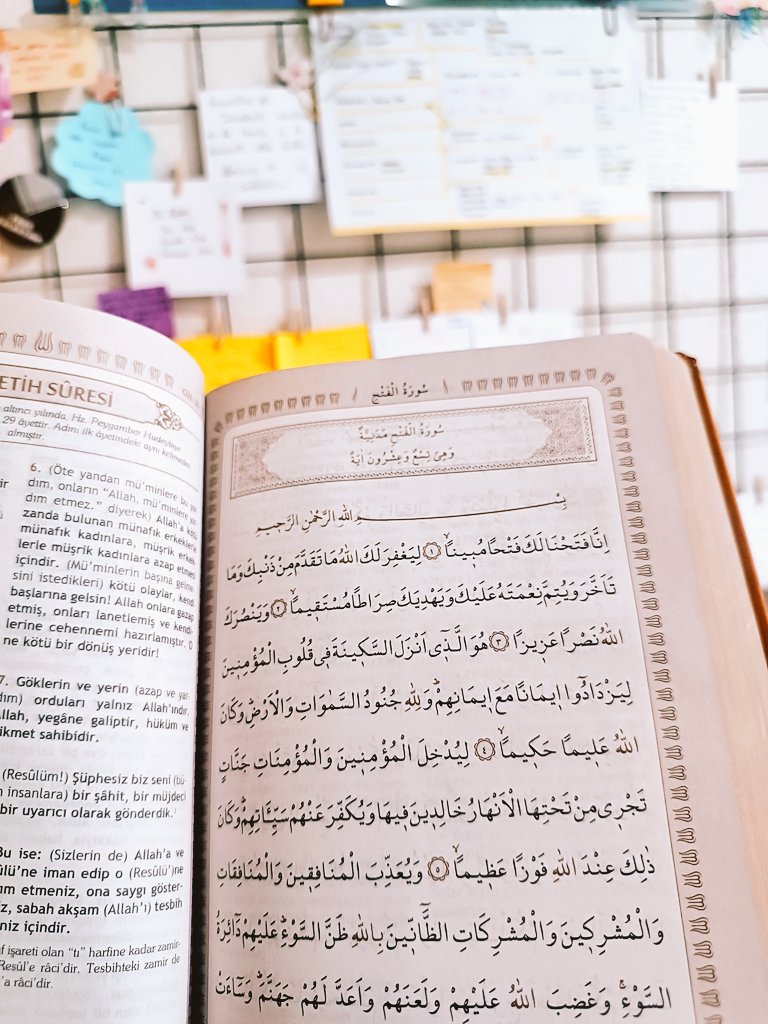 ETİH SÛRESİ
altıncı yılında, Hz. Peygamber Hudeybiye
29 âyettir. Adını ilk âyetindeki aynı kelimeden
almıştır.
6. (Öte yandan mü'minlere bu yar
dım, onların "Allah, mü'minlere yar
dım etmez." diyerek) Allah'a kötü
zanda bulunan münafık erkeklerle
münafık kadınlara, müşrik erkek
lerle müşrik kadınlara azap etmesi
içindir. (Mü'minlerin başına gelme
sini istedikleri) kötü olaylar, kendi
başlarına gelsin! Allah onlara gazap
etmiş, onları lanetlemiş ve kendi
lerine cehennemi hazırlamıştır. O
ne kötü bir dönüş yeridir!
7. Göklerin ve yerin (azap ve yar-
dım) orduları yalnız Allah'ındır.
Allah, yegâne galiptir, hüküm ve
ikmet sahibidir.
(Resûlüm!) Şüphesiz biz seni (bü-
n insanlara) bir şâhit, bir müjdeci
bir uyarıcı olarak gönderdik.
Bu ise: (Sizlerin de) Allah'a ve
ûlü'ne iman edip o (Resûlü')ne
ım etmeniz, ona saygı göster-
iz, sabah akşam (Allah'ı) tesbih
niz içindir.
f işareti olan "tı" harfine kadar zamir-
Resûl'e râci'dir. Tesbihteki zamir de
'a râci'dir.
سُورَةُ الْفَتْحِ
سُورَةُ الْفَتْحِ مَدَنِيَّةٌ
وَهِيَ تِسْعٌ وَعِشْرُونَ اٰيَةً
بِسْمِ اللهِ الرَّحْمٰنِ الرَّحِيمِ
اِنَّا فَتَحْنَا لَكَ فَتْحًا مُبِينًاۙ ﴿١﴾ لِيَغْفِرَ لَكَ اللهُ مَا تَقَدَّمَ مِنْ ذَنْبِكَ وَمَا
تَاَخَّرَ وَيُتِمَّ نِعْمَتَهُ عَلَيْكَ وَيَهْدِيَكَ صِرَاطًا مُسْتَقِيمًاۙ ﴿٢﴾ وَيَنْصُرَكَ
اللهُ نَصْرًا عَزِيزًا ﴿٣﴾ هُوَ الَّذِي اَنْزَلَ السَّكِينَةَ فِي قُلُوبِ الْمُؤْمِنِينَ
لِيَزْدَادُوا اِيمَانًا مَعَ اِيمَانِهِمْۜ وَلِلهِ جُنُودُ السَّمٰوَاتِ وَالْاَرْضِۜ وَكَانَ
اللهُ عَلِيمًا حَكِيمًاۙ ﴿٤﴾ لِيُدْخِلَ الْمُؤْمِنِينَ وَالْمُؤْمِنَاتِ جَنَّاتٍ
تَجْرِي مِنْ تَحْتِهَا الْاَنْهَارُ خَالِدِينَ فِيهَا وَيُكَفِّرَ عَنْهُمْ سَيِّـَٔاتِهِمْۜ وَكَانَ
ذٰلِكَ عِنْدَ اللهِ فَوْزًا عَظِيمًاۙ ﴿٥﴾ وَيُعَذِّبَ الْمُنَافِقِينَ وَالْمُنَافِقَاتِ
وَالْمُشْرِكِينَ وَالْمُشْرِكَاتِ الظَّٓانِّينَ بِاللهِ ظَنَّ السَّوْءِۜ عَلَيْهِمْ دَٓائِرَةُ
السَّوْءِۚ وَغَضِبَ اللهُ عَلَيْهِمْ وَلَعَنَهُمْ وَاَعَدَّ لَهُمْ جَهَنَّمَۜ وَسَٓاءَتْ